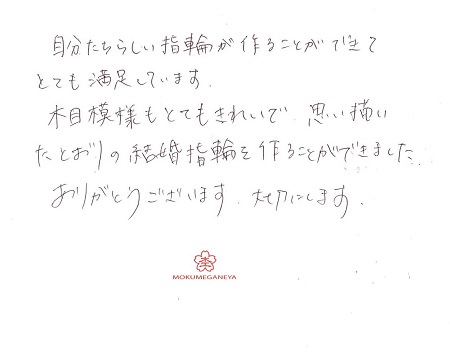 自分たちらしい指輪が作ることができて
とても満足しています.
木目模様もとてもきれいで 思い描い
たとおりの結婚指輪を作ることができました.
ありがとうございます. 大切にします.
MOKUMEGANEYA